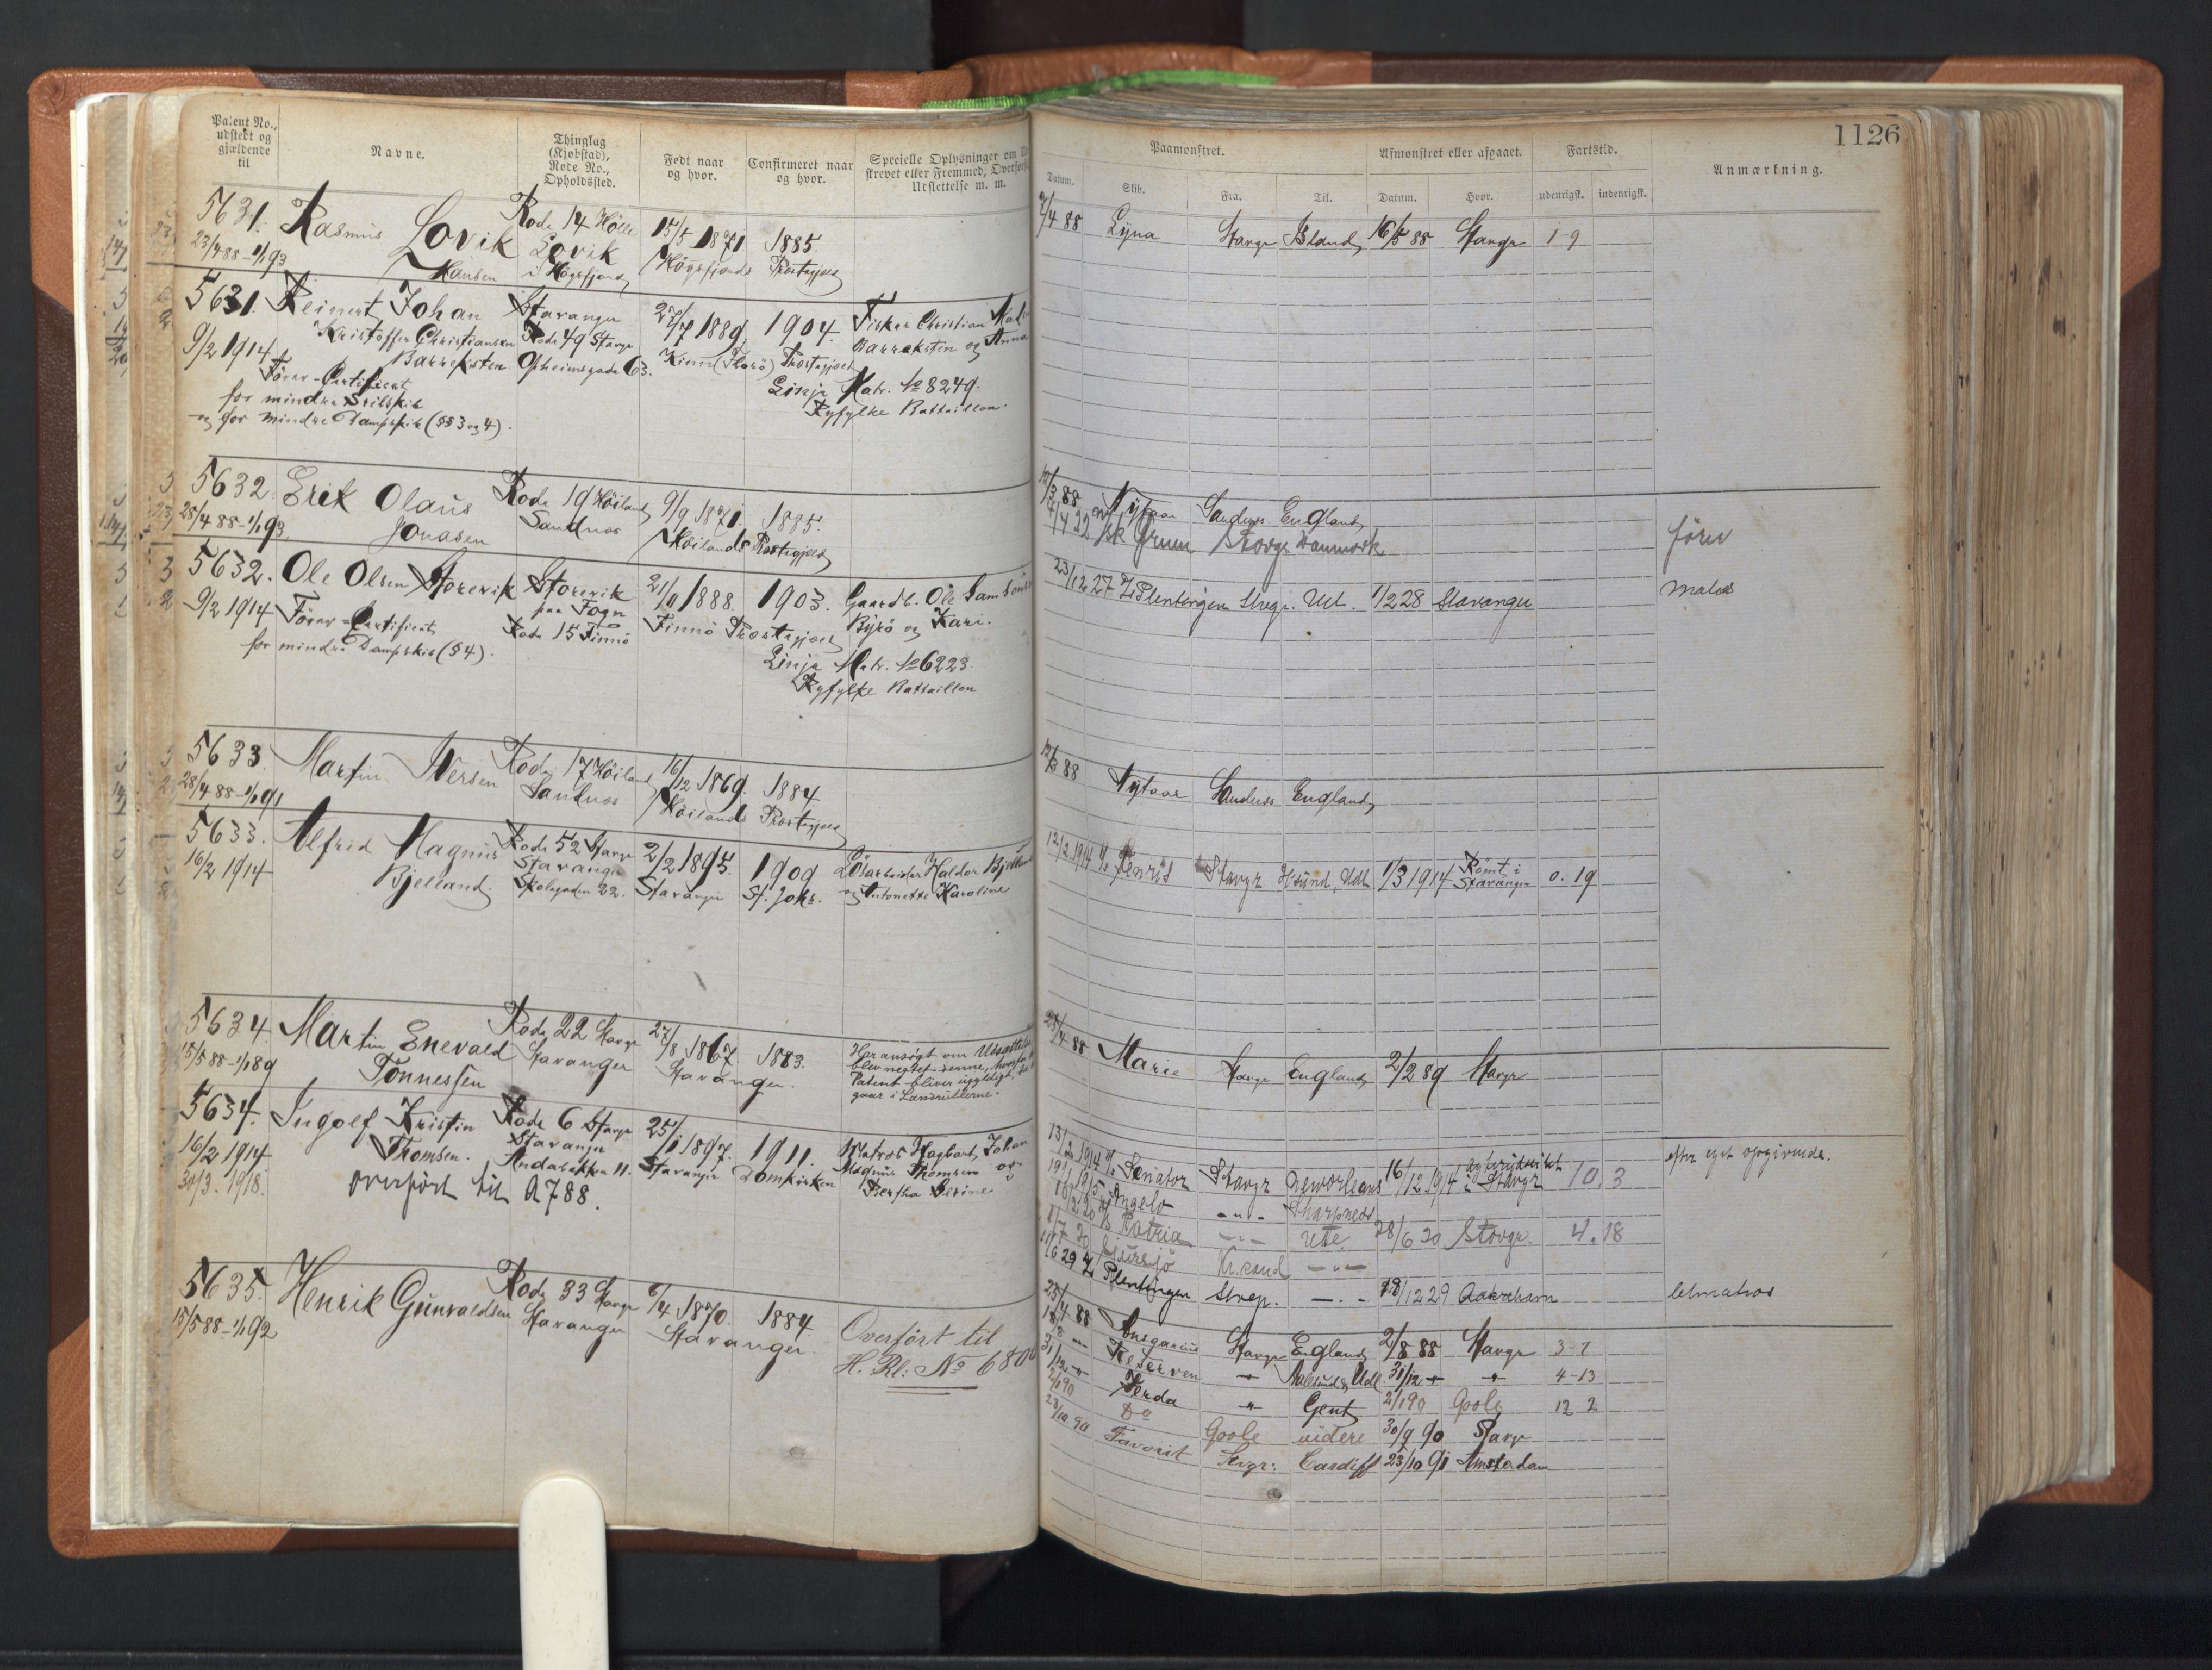 Patent No.,
udstedt og
gjældende
til
Navne.
Thinglag
(Kjøbstad),
Rode No.,
Opholdssted.
Født naar
og hvor.
Confirmeret naar
og hvor.
Specielle Oplysninger om
strevet eller Fremmed, Overført
Udslettelse m. m.
5631. Rasmus Lovik Rode 14 Hölle 15/5 1871 1885.
23/4 88 - 1/1 93 Hansen Lovik
i Høgsfjord Høgsfjords Præstegjæld
5631. Reinert Johan Stavanger 27/7 1889. 1904. Fisker Christian
Kristoffer Christiansen Rode 49 Stavgr Barreksten og Anna
9/2 1914 Barreksten Opheimsgade 63. Kinn (Florö) Præstegjæld
Fører-Certifikat Linje Matr. No 8249.
for mindre Seilskib Ryfylke Battaillon.
og for mindre Dampskib (§§ 3 og 4).
5632. Erik Olaus Rode 19 Høiland 9/9 1871. 1885.
28/4 88 - 1/1 93 Jonasen Sandnes Høilands Præstegjæld
5632. Ole Olsen Storevik Storevik 21/11 1888. 1903. Gaardb. Ole
9/2 1914 Fører-Certifikat paa Fogn Finnö Præstegjæld Byrö og Kari.
for mindre Dampskib (§ 4). Rode 15 Finnö Linje Matr. No 6223.
Ryfylke Battaillon
5633. Martin Iversen Rode 17 Høiland 16/12 1869. 1884
28/4 88 - 1/1 91 Sandnes Høilands Præstegjæld
5633. Alfred Magnus Rode 52 Stavgr 2/2 1895. 1909 Løsarbeider Haldor Bjelland
16/2 1914 Bjelland. Stavanger Stavanger St. Johs. og Antonette Karoline
Skolegaden 22.
5634. Martin Enevald Rode 22 Stavgr 27/8 1867 1883. Har ansögt om Udsættelse
15/5 88 - 1/1 89 Tönnessen Stavanger Stavanger. blev negtet denne, hvorfor
Patent bliver ugyldigt,
gaar i Landrullerne.
5634. Ingolf Kristin Rode 6 Stavgr 25/1 1897. 1911. Matros Hagbart Johan
16/2 1914 Thomsen. Stavanger Stavanger Domkirken Magnus Thomsen og
30/3. 1918. overført til A 788. Bertha Serine
5635. Henrik Gunvaldsen Rode 33 Stavgr 6/4 1870. 1884
15/5 88 - 1/1 92 Stavanger Stavanger. Overført til
H. Rl: No 680
1126
Paamønstret.
Afmønstret eller afgaaet.
Fartstid.
Anmærkning.
Datum.
Skib.
Fra.
Til.
Datum.
Hvor.
udenrigsk.
indenrigsk.
7/4 88 Lyna Stavgr Island 16/5 88 Stavgr 1-9
12/3 88 Nytaar Sandnes England
4/4 22 Ørnen Stavgr Danmark fører
23/12 27 Plentingen Stvgr. Udl. 1/2 28 Stavanger matros
12/3 88 Nytaar Sandnes England
12/2 1914 Fenris Stavgr Hsund, Udl 1/3 1914 Römt i
Stavanger 0. 19
25/4 88 Marie Stavgr England 2/2 89 Stavgr
13/2 1914 Senator Stavgr Neworleans 16/12 1914 i Stavgr 10. 3 efter eget opgivende.
19/1 1915 Angelo - " - Sharpness
10/2 20 Patria - " - Ude. 28/6 20 Stavgr. 4. 18
1/7 20 Kr.sand - " -
29 Plentingen Strep. - . - 18/12 29 Aakrehavn letmatros
25/4 88 Ansgarius Stavgr England 2/8 88 Stavgr 3-7
18/8 - Reserven - " - Aalesund & Udl. 31/12 - " - " - 4-13
31/12 - " Terda " Gent 2/1 90 Goole 12 2
2/1 90 Do Goole videre 30/9 90 Stavgr
23/10 90 Favorit Stvgr: Cardiff 23/10 91 Amsterdam